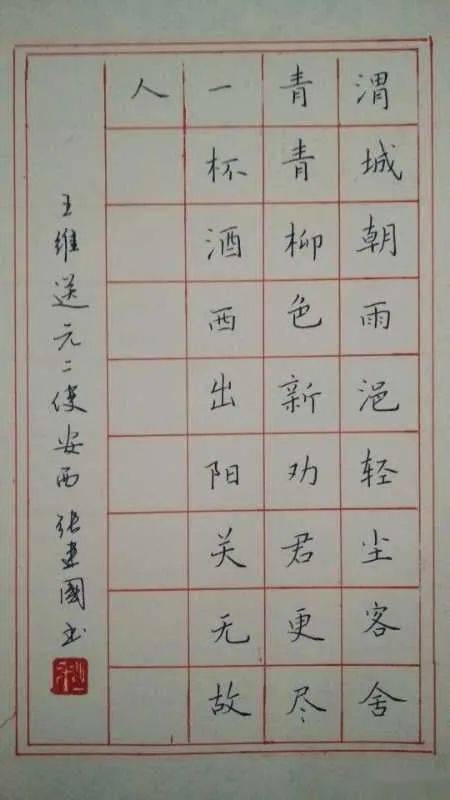 渭城朝雨浥轻尘客舍
青青柳色新劝君更尽
一杯酒西出阳关无故
人
王维送元二使安西 张建国书